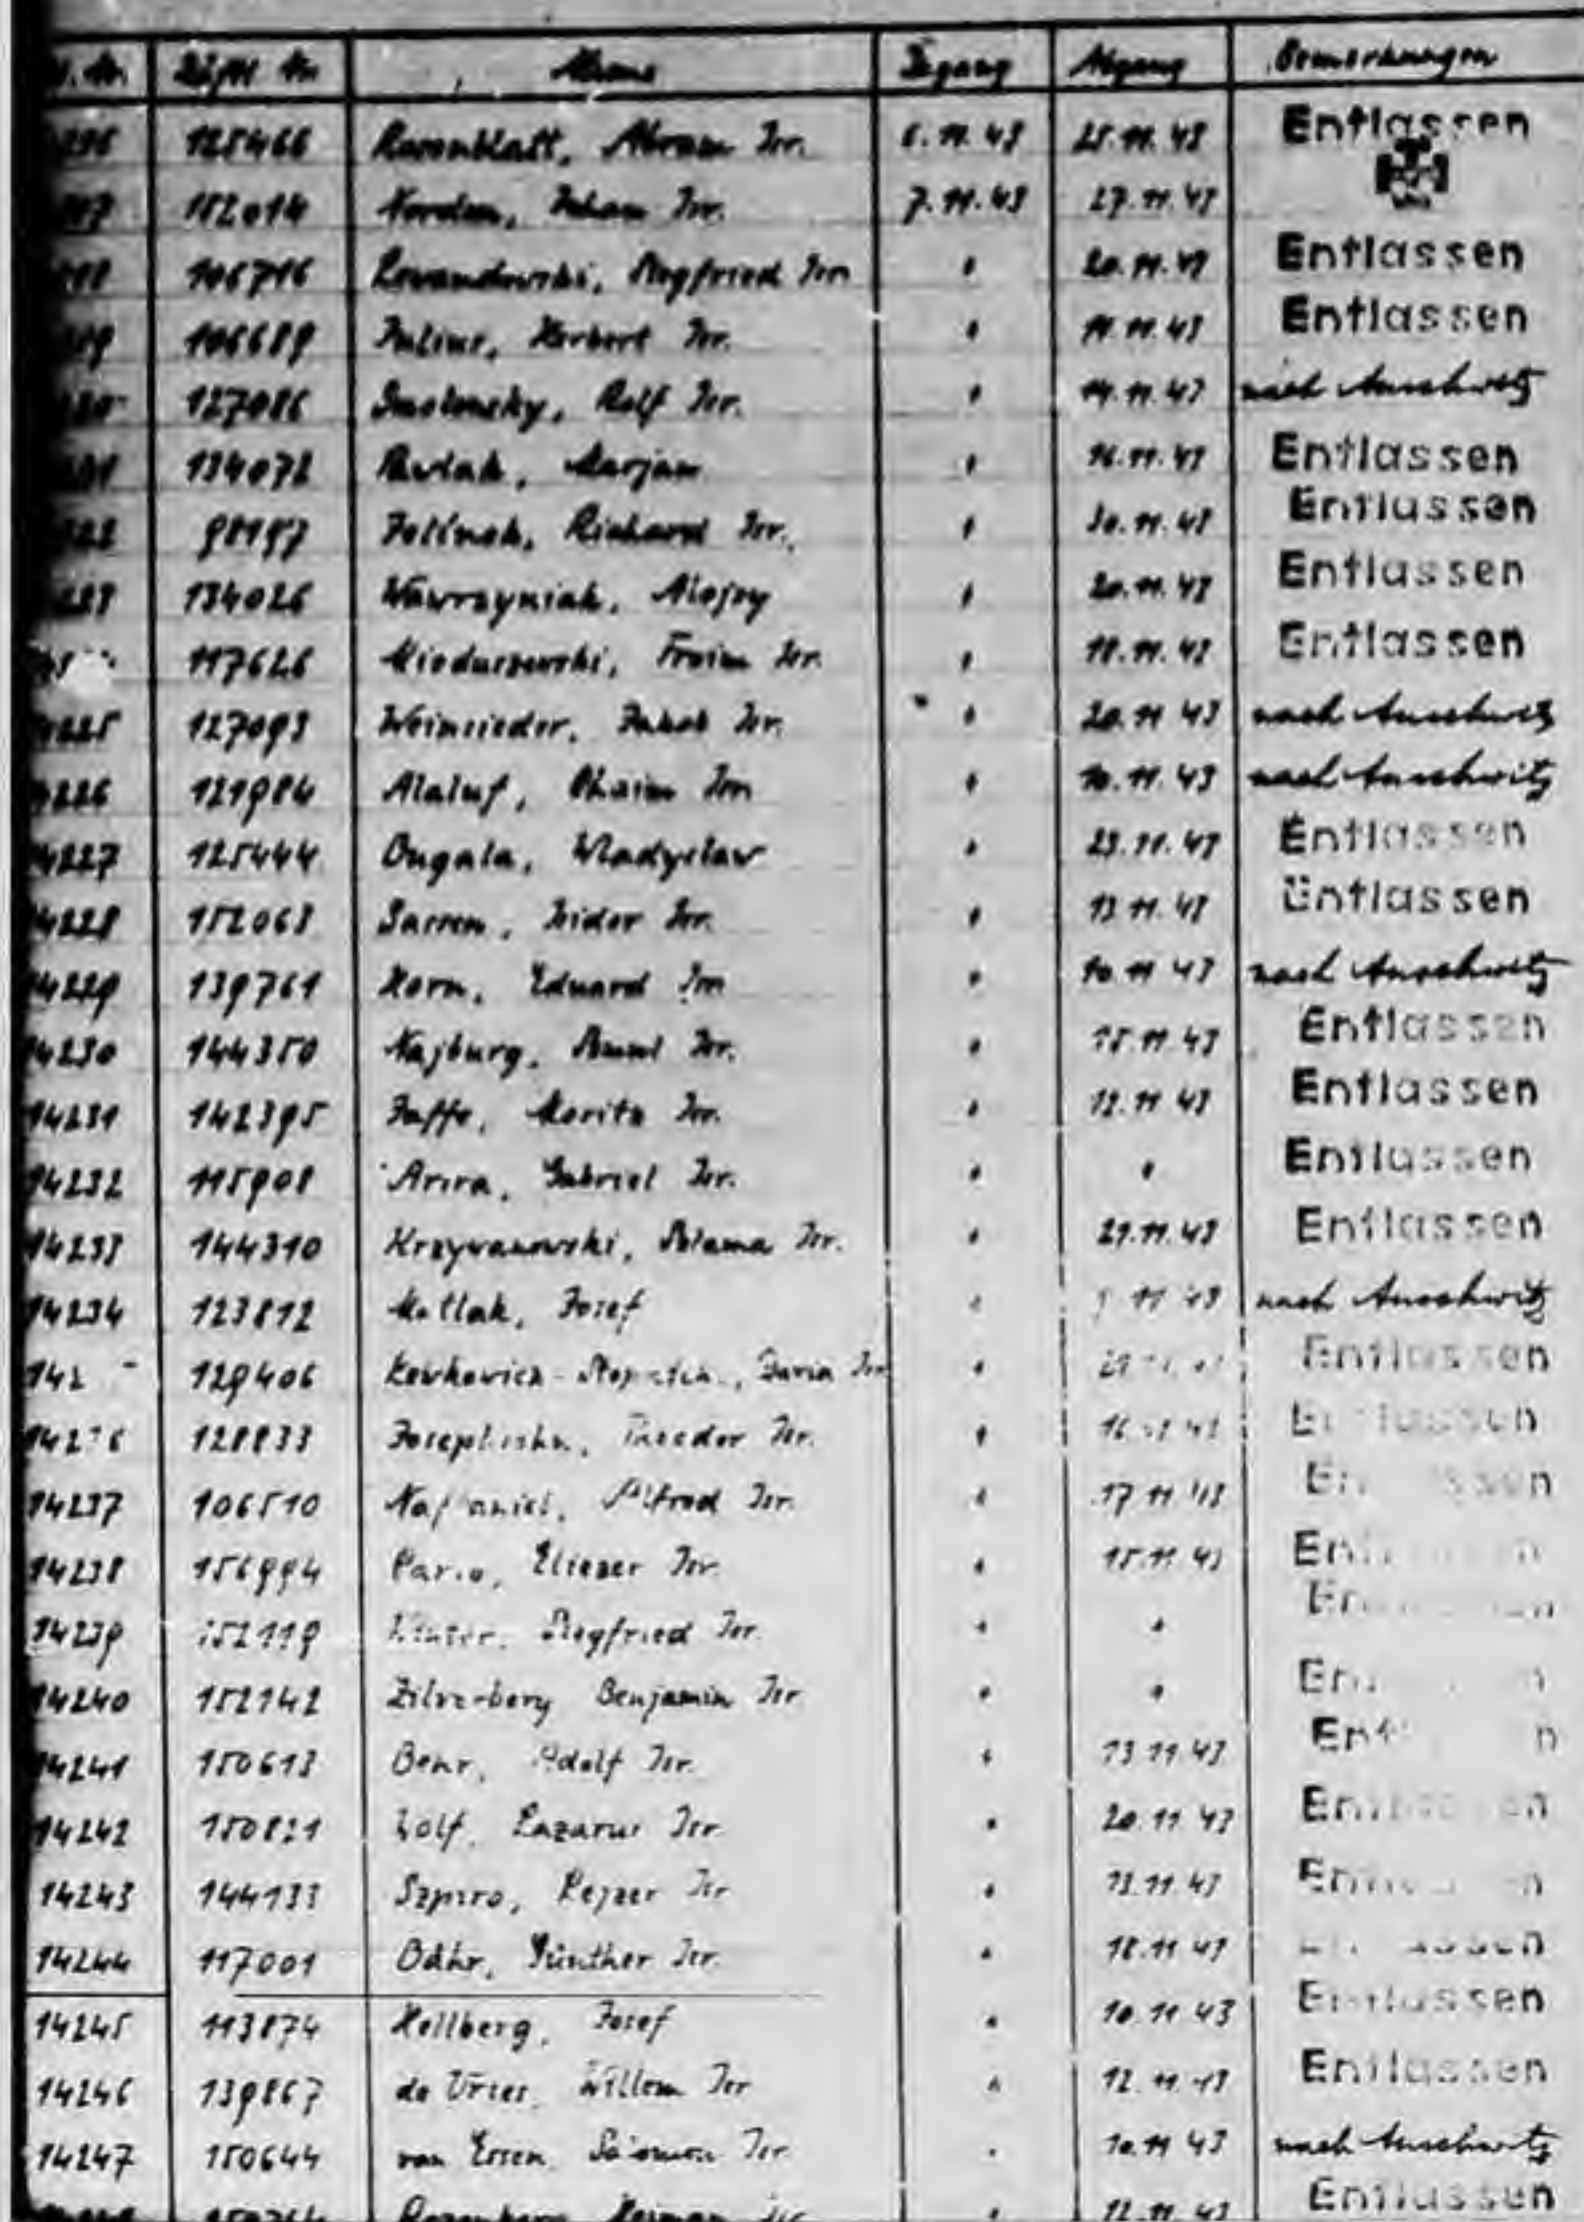 Nr. Häftl Nr. Name Zugang Abgang Bemerkungen
125466 Rosenblatt, Abram Isr. 6.11.43 25.11.43 Entlassen
152014 Norden, Isr. 7.11.43 27.11.43
106716 Lewandowski, Siegfried Isr. " 20.11.43 Entlassen
106689 Julius, Herbert Isr. " 11.11.43 Entlassen
127086 Rolf Isr. " nach Auschwitz
134072 Pawlak, Marjan " 16.11.43 Entlassen
98197 Richard Isr. " 30.11.43 Entlassen
134026 Wawrzyniak, Alojzy " 20.11.43 Entlassen
117626 Mioduszewski, Froim Isr. " 18.11.43 Entlassen
14225 127093 Jakob Isr. " 20.11.43 nach Auschwitz
14226 121984 Alaluf, Chaim Isr. " 10.11.43 nach Auschwitz
14227 125444 Bugala, Wladyslaw " 23.11.43 Entlassen
14228 152063 Isidor Isr. " 13.11.43 Entlassen
14229 139761 Horn, Eduard Isr. " 10.11.43 nach Auschwitz
14230 144350 Najburg, Isr. " 15.11.43 Entlassen
14231 142395 Jaffe, Moritz Isr. " 12.11.43 Entlassen
14232 115908 Gabriel Isr. " " Entlassen
14233 144310 Krzywanowski, Szlama Isr. " 29.11.43 Entlassen
14234 123812 Matlak, Josef " 11.43 nach Auschwitz
129406 Isr. " Entlassen
128833 Josephsohn, Theodor Isr. " 16.11.43 Entlassen
14237 106510 Alfred Isr. " 17.11.43 Entlassen
14238 156994 Eliezer Isr. " 15.11.43 Entlassen
14239 152119 Winter, Siegfried Isr. " " Entlassen
14240 152142 Zilverberg Benjamin Isr. " " Entlassen
14241 150613 Behr, Adolf Isr. " 13.11.43 Entlassen
14242 150821 Wolf, Lazarus Isr. " 20.11.43 Entlassen
14243 144133 Szpiro, Lejzer Isr. " 13.11.43 Entlassen
14244 117001 Bähr, Günther Isr. " 18.11.43 Entlassen
14245 113874 Hellberg, Josef " 10.11.43 Entlassen
14246 139867 de Vries, Willem Isr. " 12.11.43 Entlassen
14247 150644 van Essen, Salomon Isr. " 10.11.43 nach Auschwitz
Rozenberg, Herman Isr. " 12.11.43 Entlassen